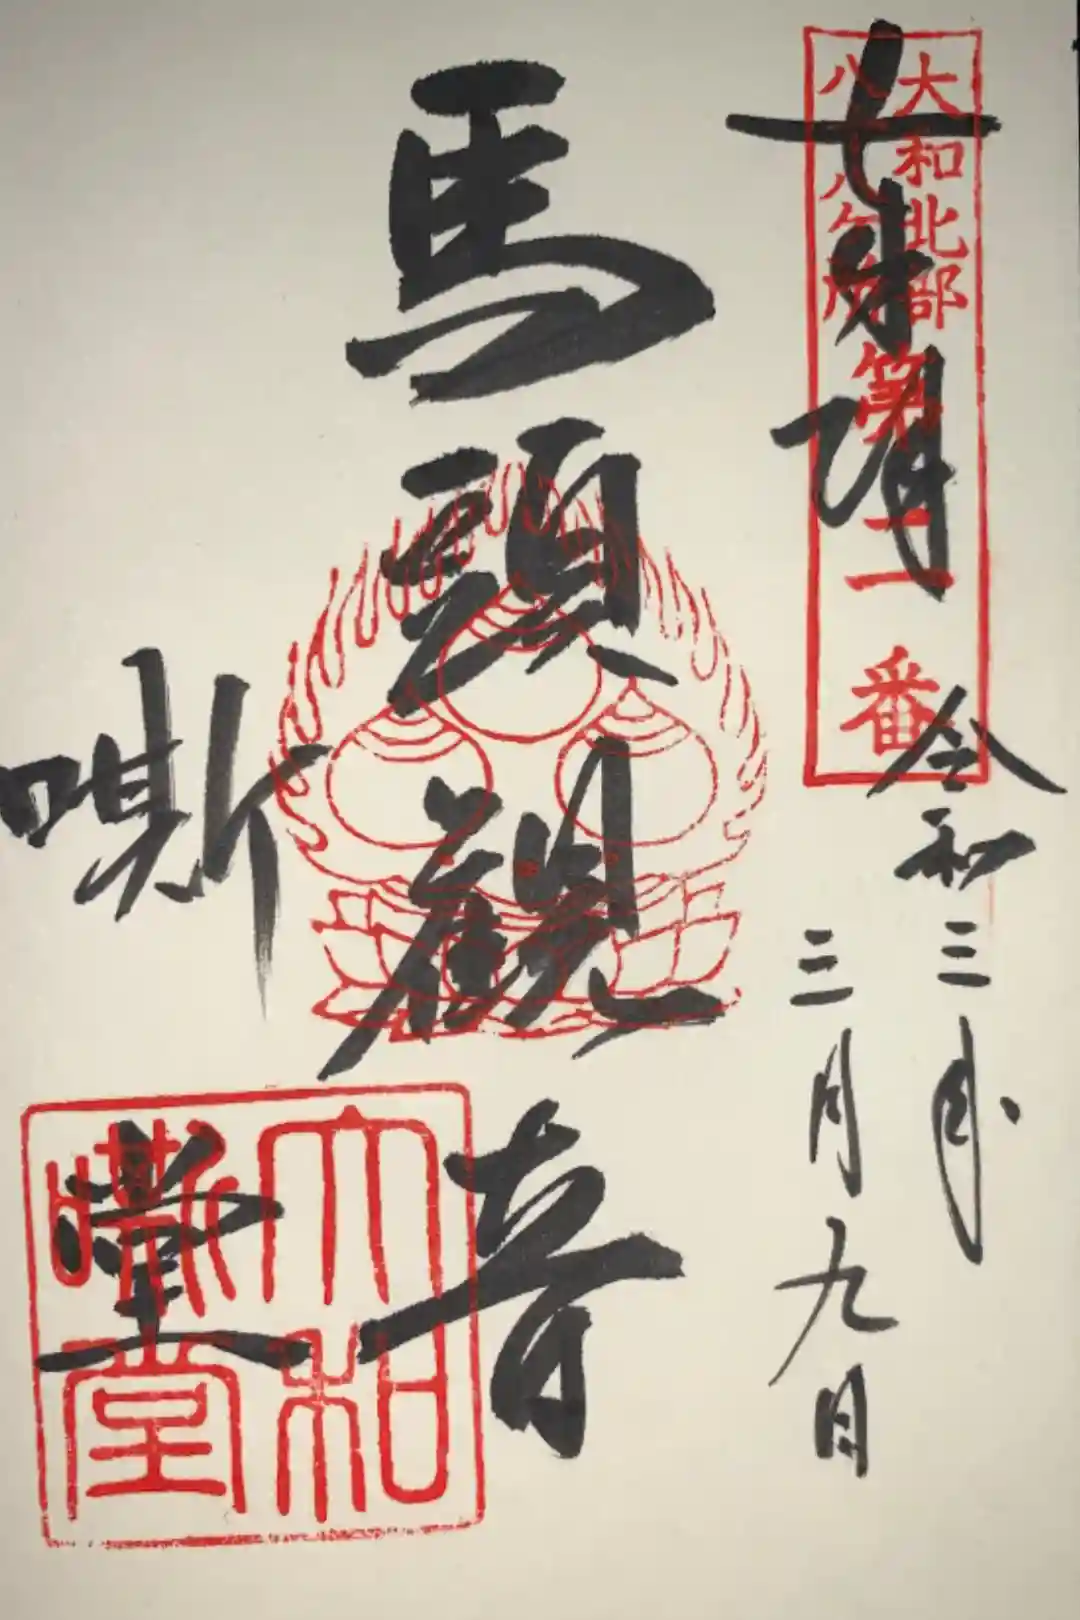 大和北部
八十八ケ所
第二番
令和三年
三月九日
馬頭観音
嘶堂
大和
嘶堂